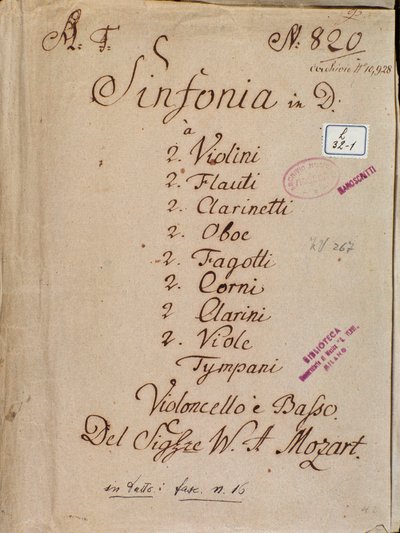 N: 820
Sinfonia in D:
à
2. Violini
2. Flauti
2. Clarinetti
2. Oboe
2. Fagotti
2. Corni
2 Clarini
2. Viole
Tympani
Violoncello è Basso.
Del Sigre W. A Mozart.
in tutto: fasc. n. 16
L
32-1
MANOSCRITTI
BIBLIOTECA
MILANO